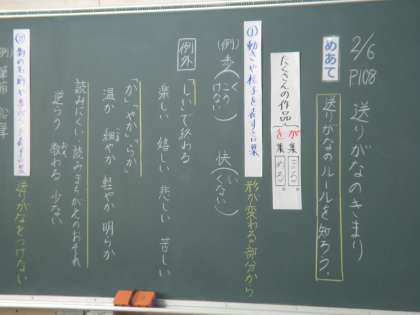 2/6
P108
送りがなのきまり
めあて
送りがなのルールを知ろう。
たくさんの作品
が集
を集
(1)動きや様子を表す言葉
形が変わる部分から
(例)歩
く
こう
けない
快
い
くない
例外
「しい」で終わる
楽しい 嬉しい 悲しい 苦しい
「か」「やか」「らか」
温か 細やか 軽やか 明らか
読みにくい・読みまちがえのおそれ
逆らう 教わる 少ない
送りがなをつけない